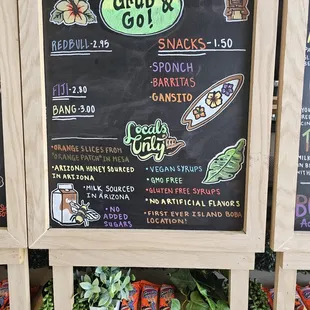 Grab &
Go!
REDBULL-2.95
FIJI-2.80
BANG-3.00
SNACKS-1.50
-SPONCH
-BARRITAS
-GANSITO
Locals
Only
-ORANGE SLICES FROM
"ORANGE PATCH" IN MESA
-ARIZONA HONEY SOURCED
IN ARIZONA
-MILK SOURCED
IN ARIZONA
-NO
ADDED
SUGARS
-VEGAN SYRUPS
-GMO FREE
-GLUTEN FREE SYRUPS
-NO ARTIFICIAL FLAVORS
-FIRST EVER ISLAND BOBA
LOCATION!